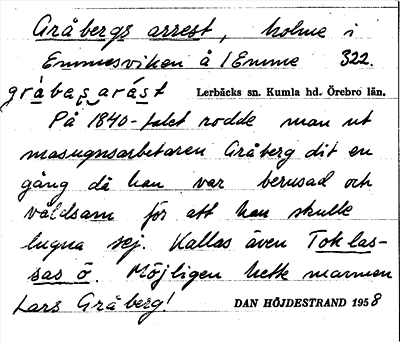 Gråbergs arrest, holme i
Emmesviken å l Emme 322.
gråbaṣ arást Lerbäcks sn. Kumla hd. Örebro län.
På 1840-talet rodde man ut
masugnsarbetaren Gråberg dit en
gång då han var berusad och
våldsam för att han skulle
lugna sej. Kallas även Toklas-
sas ö. Möjligen hette mannen
Lars Gråberg!
DAN HÖJDESTRAND 1958